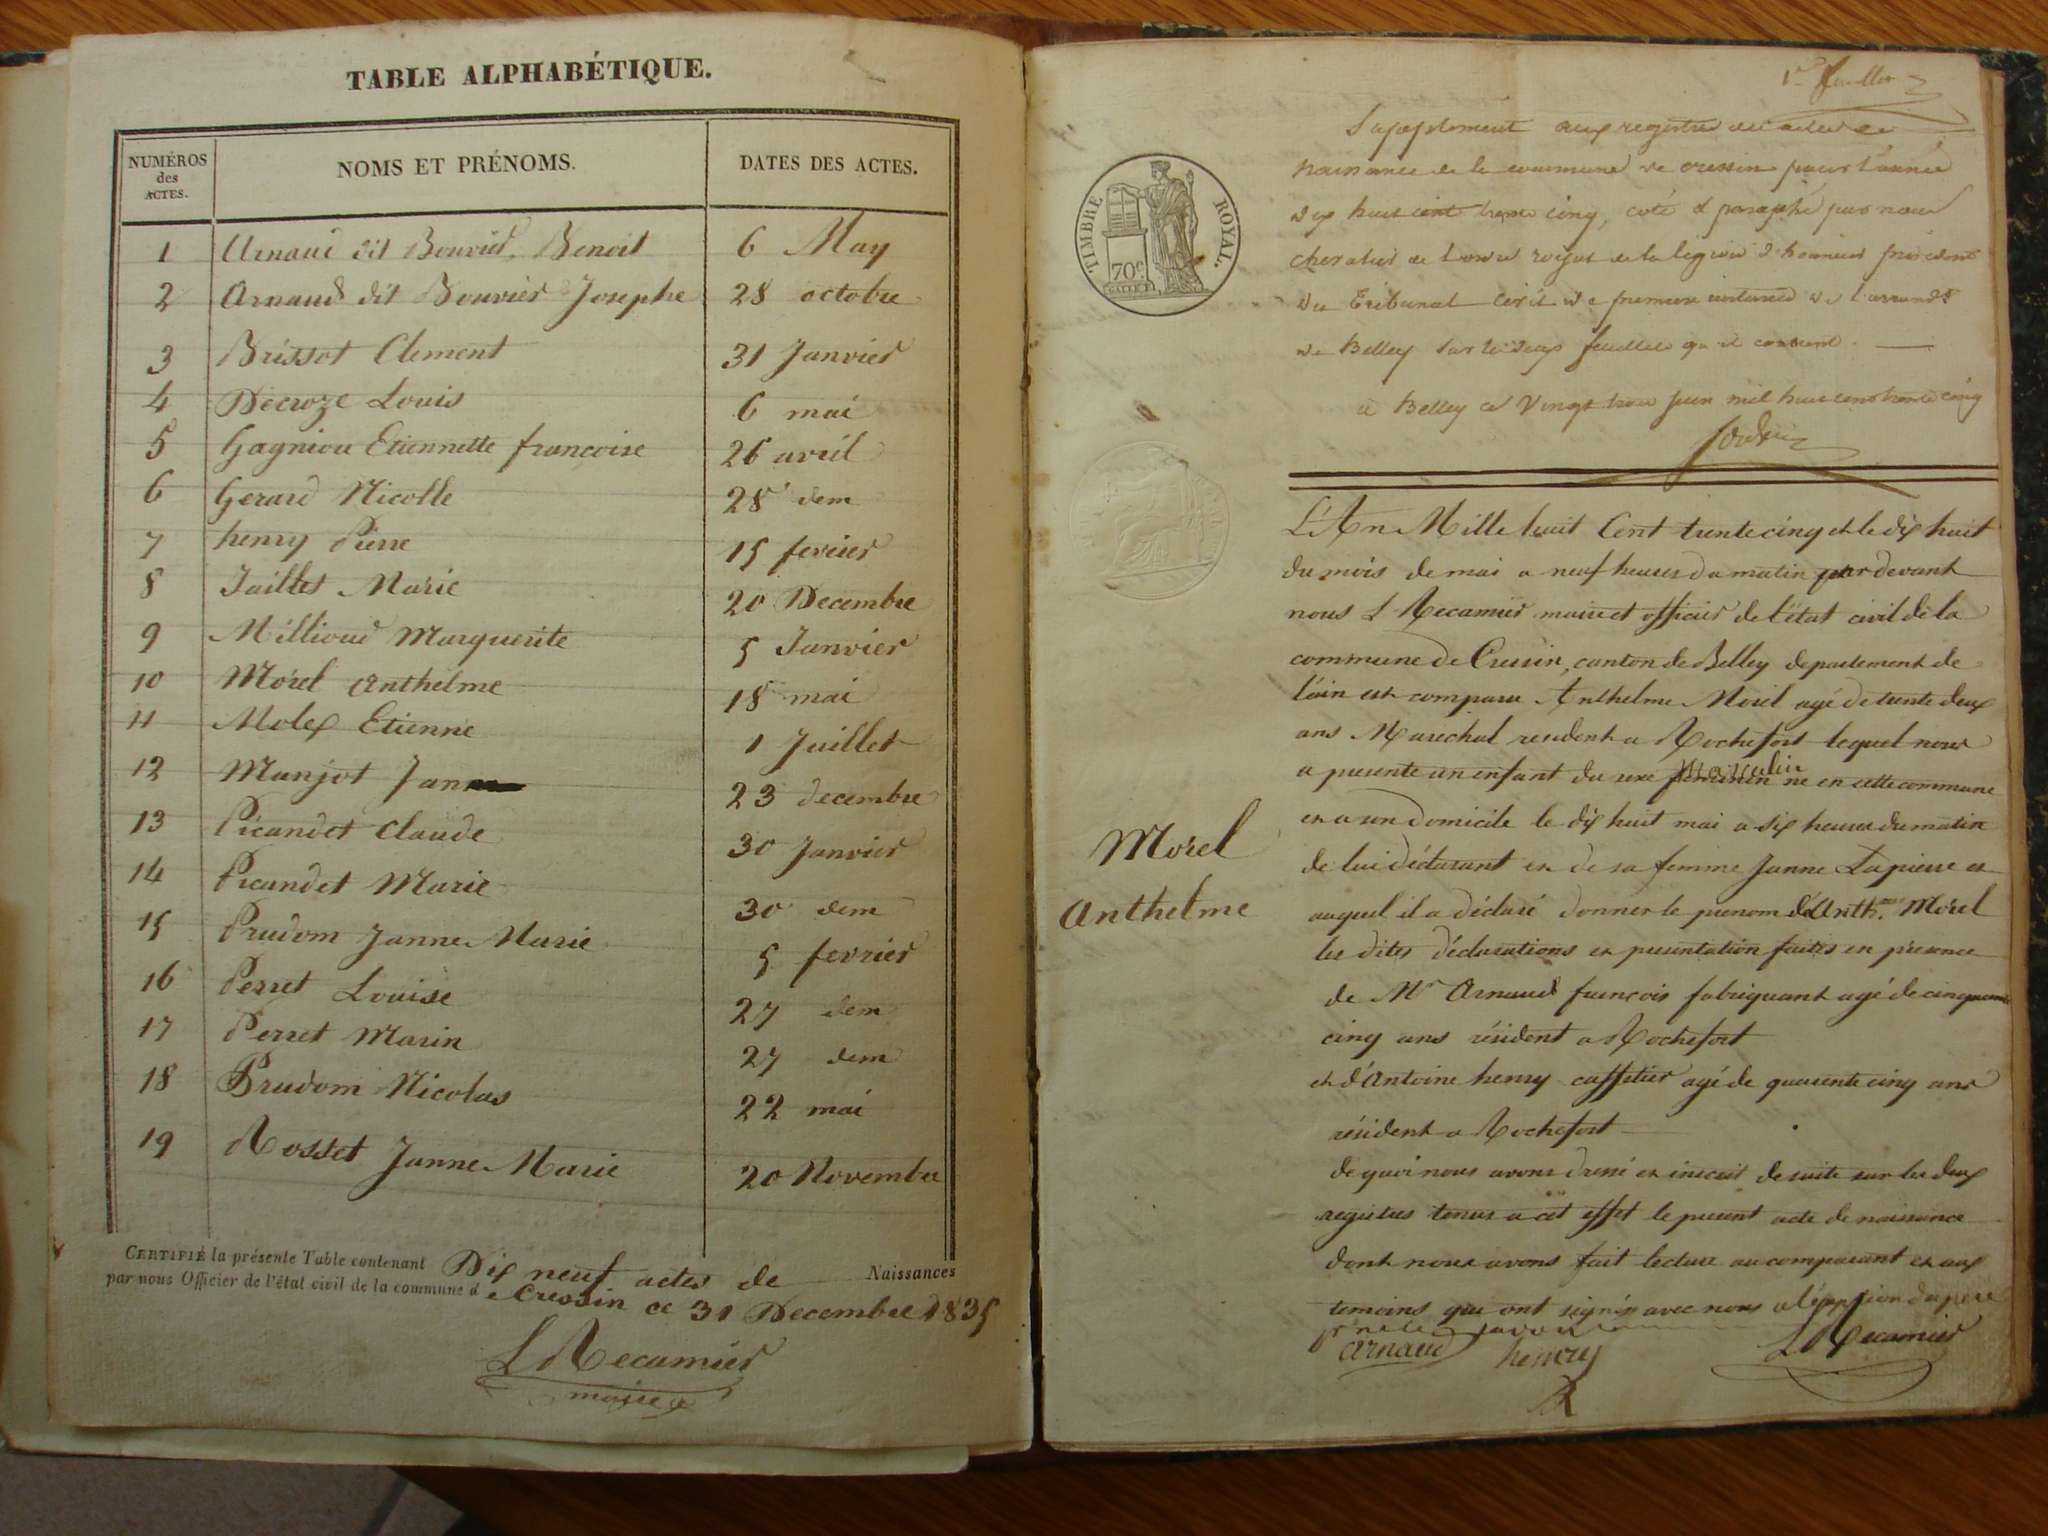 TABLE ALPHABÉTIQUE.
NUMÉROS des ACTES. NOMS ET PRÉNOMS. DATES DES ACTES.
1 Arnaud dit Bouvier, Benoit 6 May
2 Arnaud dit Bouvier Josephe 28 octobre
3 Brissot Clement 31 Janvier
4 Decroze Louis 6 mai
5 Gagniou Etiennette francoise 26 avril
6 Gerard Nicolle 28 dem
7 henry Pierre 15 fevrier
8 Jaillet Marie 20 Decembre
9 Millioud Marguerite 5 Janvier
10 Morel Anthelme 18 mai
11 Molex Etienne 1 Juillet
12 Manjot Jann 23 decembre
13 Picandet Claude 30 Janvier
14 Picandet Marie 30 dem
15 Prudom Janne Marie 5 fevrier
16 Perret Louise 27 dem
17 Perret Marin 27 dem
18 Prudom Nicolas 22 mai
19 Rosset Janne Marie 20 Novembre
CERTIFIÉ la présente Table contenant Dix neuf actes de Naissances
par nous Officier de l'état civil de la commune de Cressin ce 31 Decembre 1835
L Recamier
maire
1er feuillet
Supplement aux registres des actes de
naissance de la commune de Cressin pour l'année
dix huit cent trente cinq, coté et paraphé par nous
chevalier de l'ordre royal de la legion d'honneur président
du Tribunal Civil de premiere instance de l'arrondt
de Belley sur les deux feuillets qu'il contient.
à Belley ce Vingt trois juin mil huit cent trente cinq
TIMBRE ROYAL.
70c
L'An Mille huit Cent trente cinq et le dix huit
du mois de mai a neuf heures du matin par devant
nous L Recamier maire et officier de l'état civil de la
commune de Cressin, canton de Belley departement de
l'ain est comparu Anthelme Morel agé de trente deux
ans Marechal resident a Rochefort lequel nous
a presenté un enfant du sexe feminin masculin né en cette commune
et a son domicile le dix huit mai a six heures du matin
de lui déclarant et de sa femme Janne Lapierre et
auquel il a déclaré donner le prenom d'Anth.me Morel
les dites déclarations et presentation faites en presence
de Mr Arnaud francois fabriquant agé de cinquante
cinq ans résident a Rochefort
et d'Antoine henry caffetier agé de quarente cinq ans
résident a Rochefort
de quoi nous avons dressé et inscrit de suite sur les deux
registres tenus a cet effet le present acte de naissance
dont nous avons fait lecture au comparant et aux
temoins qui ont signés avec nous a l'éxeption du pere
Arnaud henry L Recamier
Morel
Anthelme